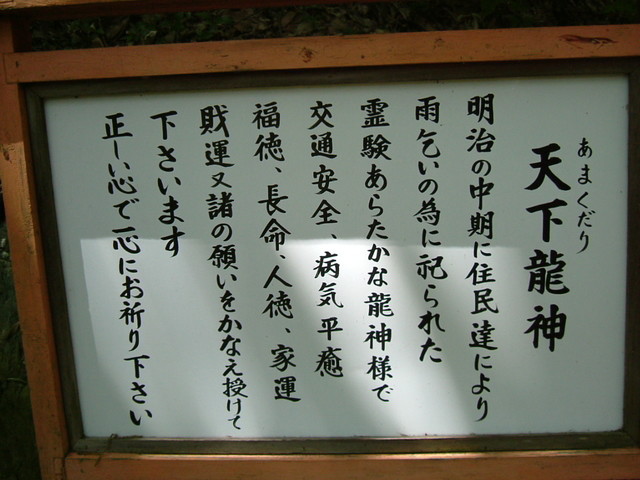 あまくだり
天下龍神
明治の中期に住民達により
雨乞いの為に祀られた
霊験あらたかな龍神様で
交通安全、病気平癒
福徳、長命、人徳、家運
財運又諸の願いをかなえ授けて
下さいます
正しい心で一心にお祈り下さい